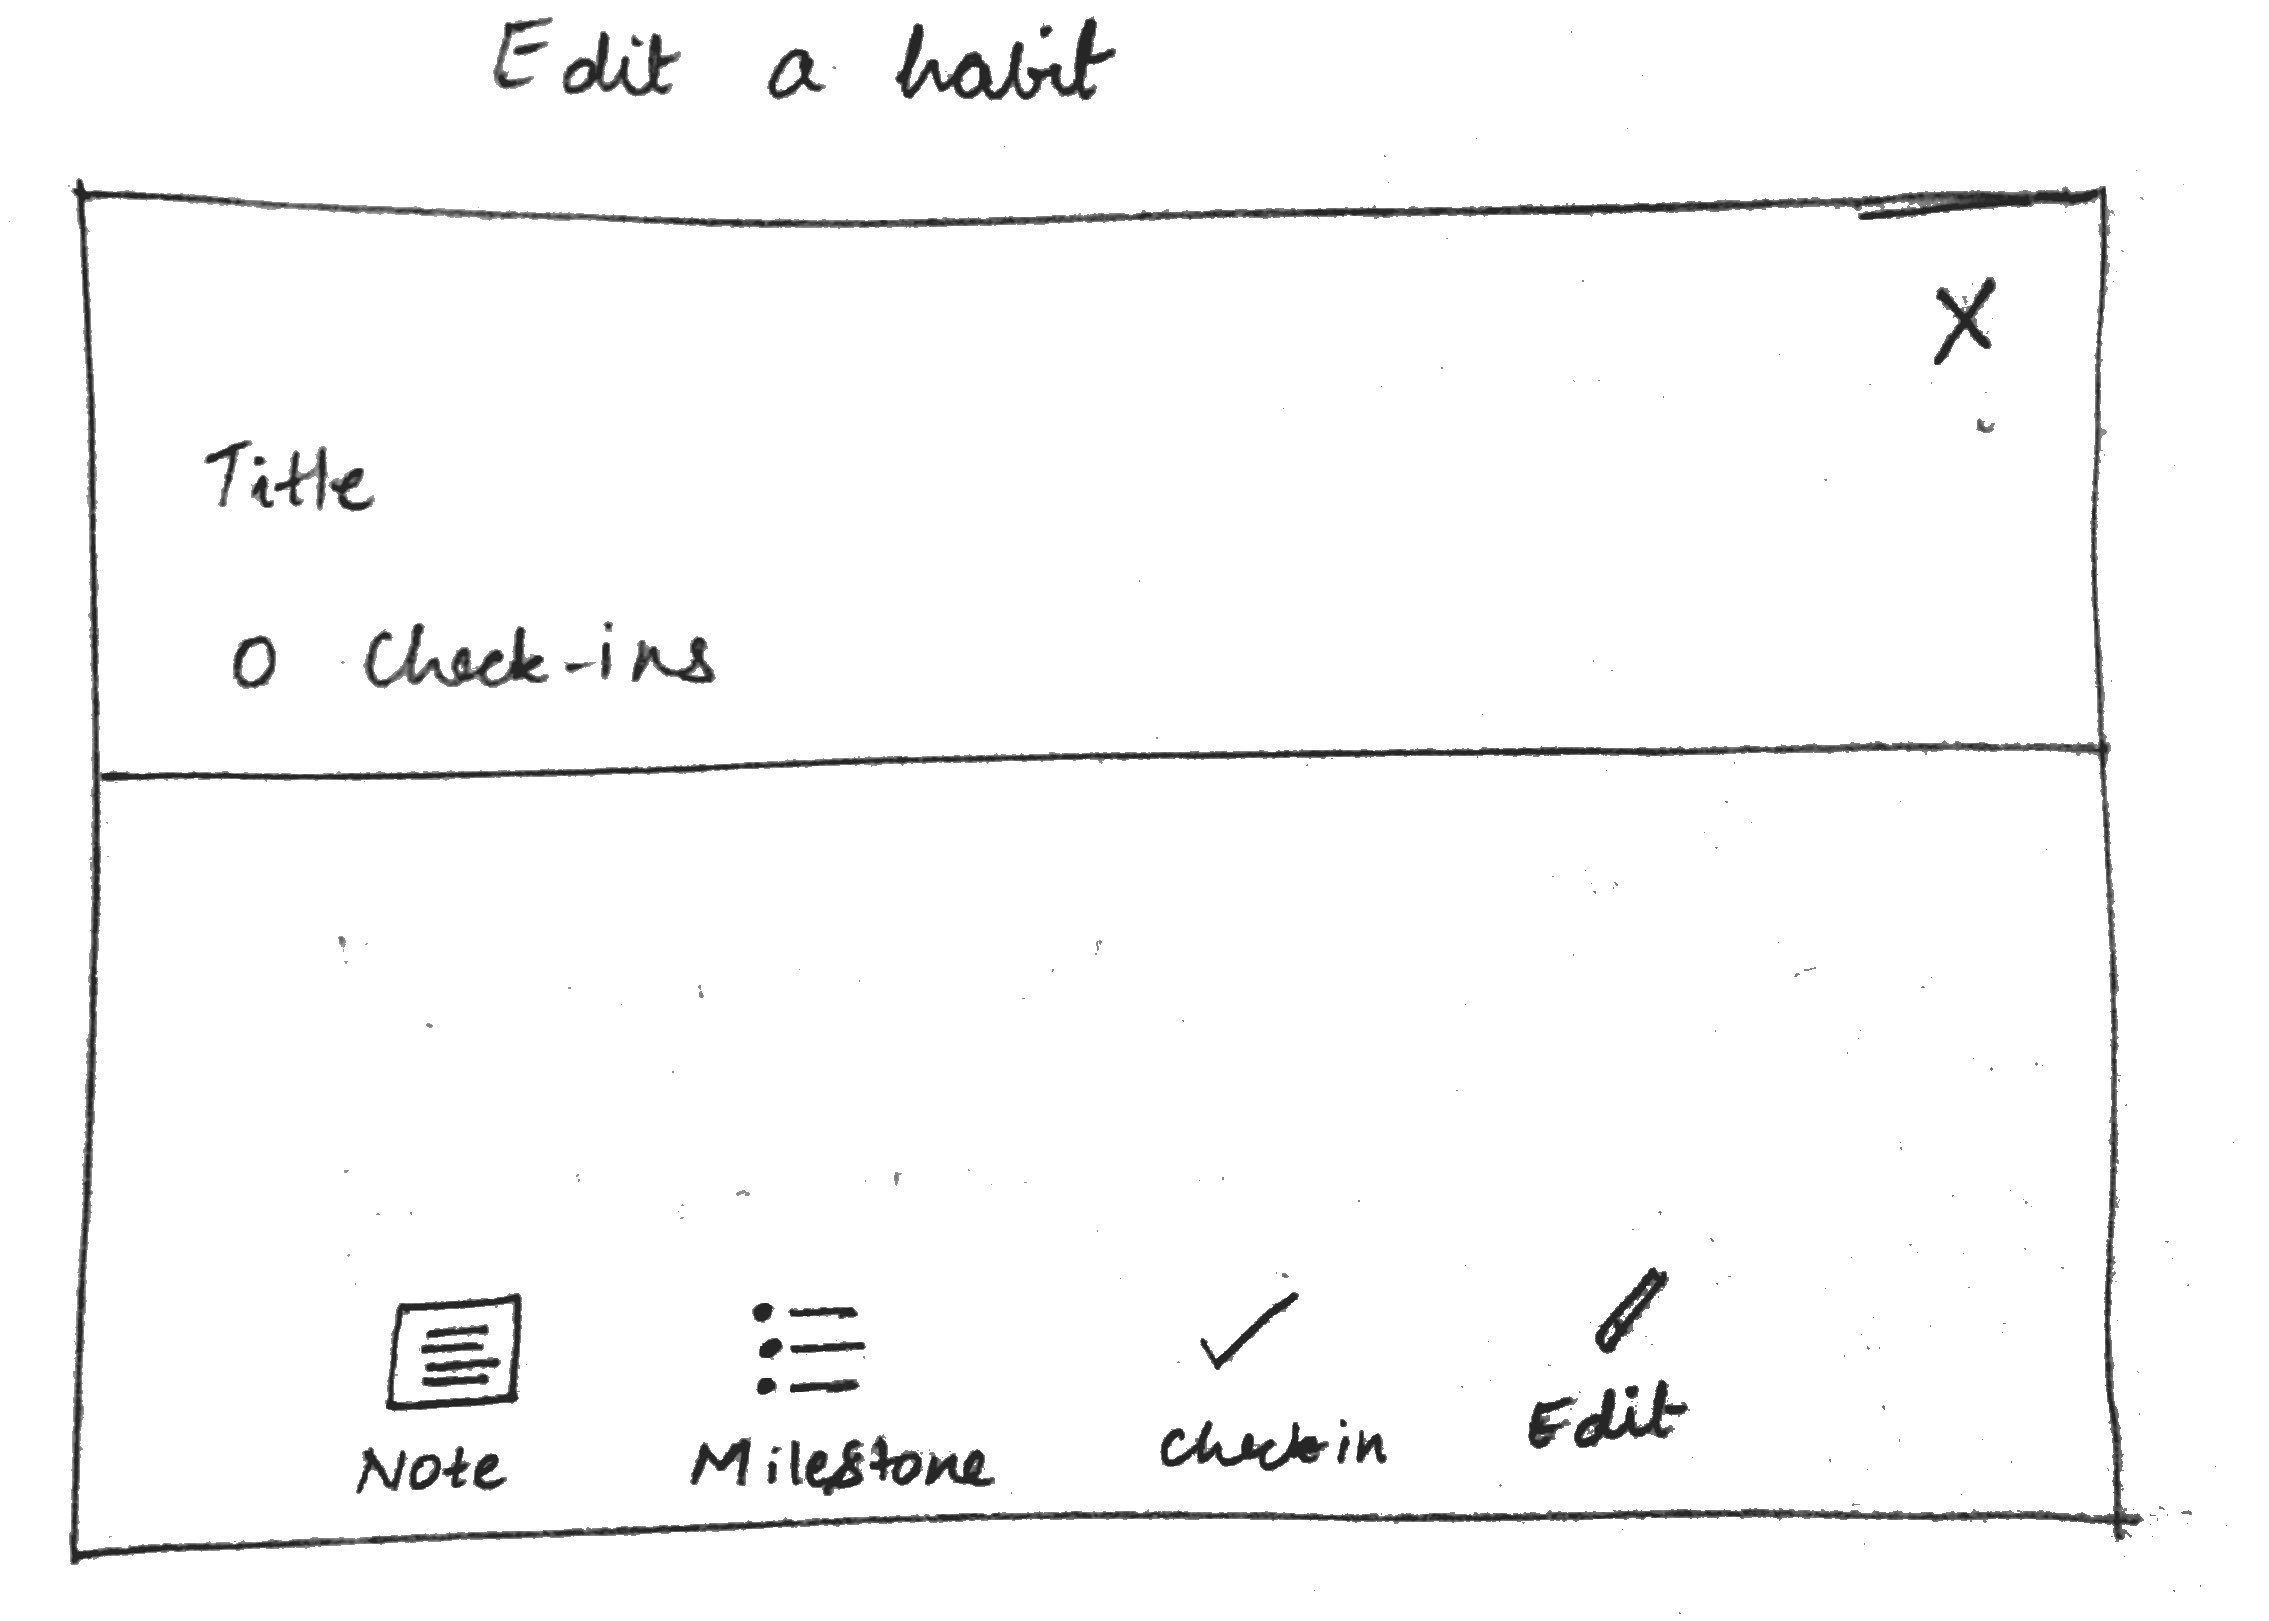 Edit a habit
X
Title
0 Check-ins
Note Milestone Checkin Edit